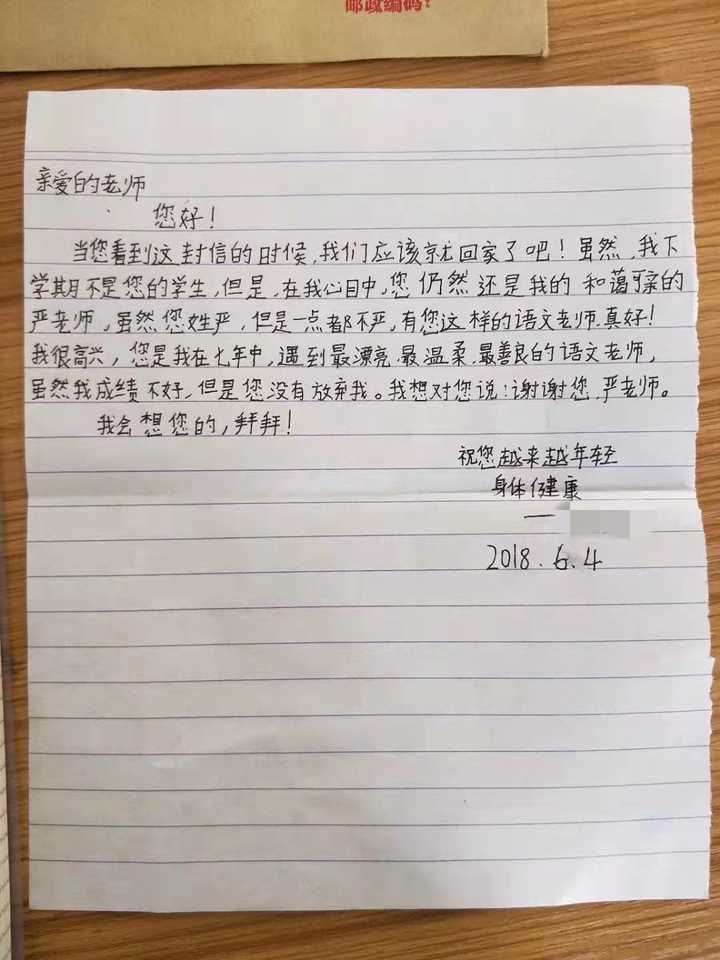 邮政编码:
亲爱的老师
您好!
当您看到这封信的时候,我们应该就回家了吧!虽然,我下
学期不是您的学生,但是,在我心目中,您仍然还是我的和蔼可亲的
严老师,虽然您姓严,但是一点都不严,有您这样的语文老师.真好!
我很高兴,您是我在七年中,遇到最漂亮.最温柔.最善良的语文老师,
虽然我成绩不好,但是您没有放弃我。我想对您说:谢谢您.严老师。
我会想您的,拜拜!
祝您越来越年轻
身体健康
—
2018.6.4